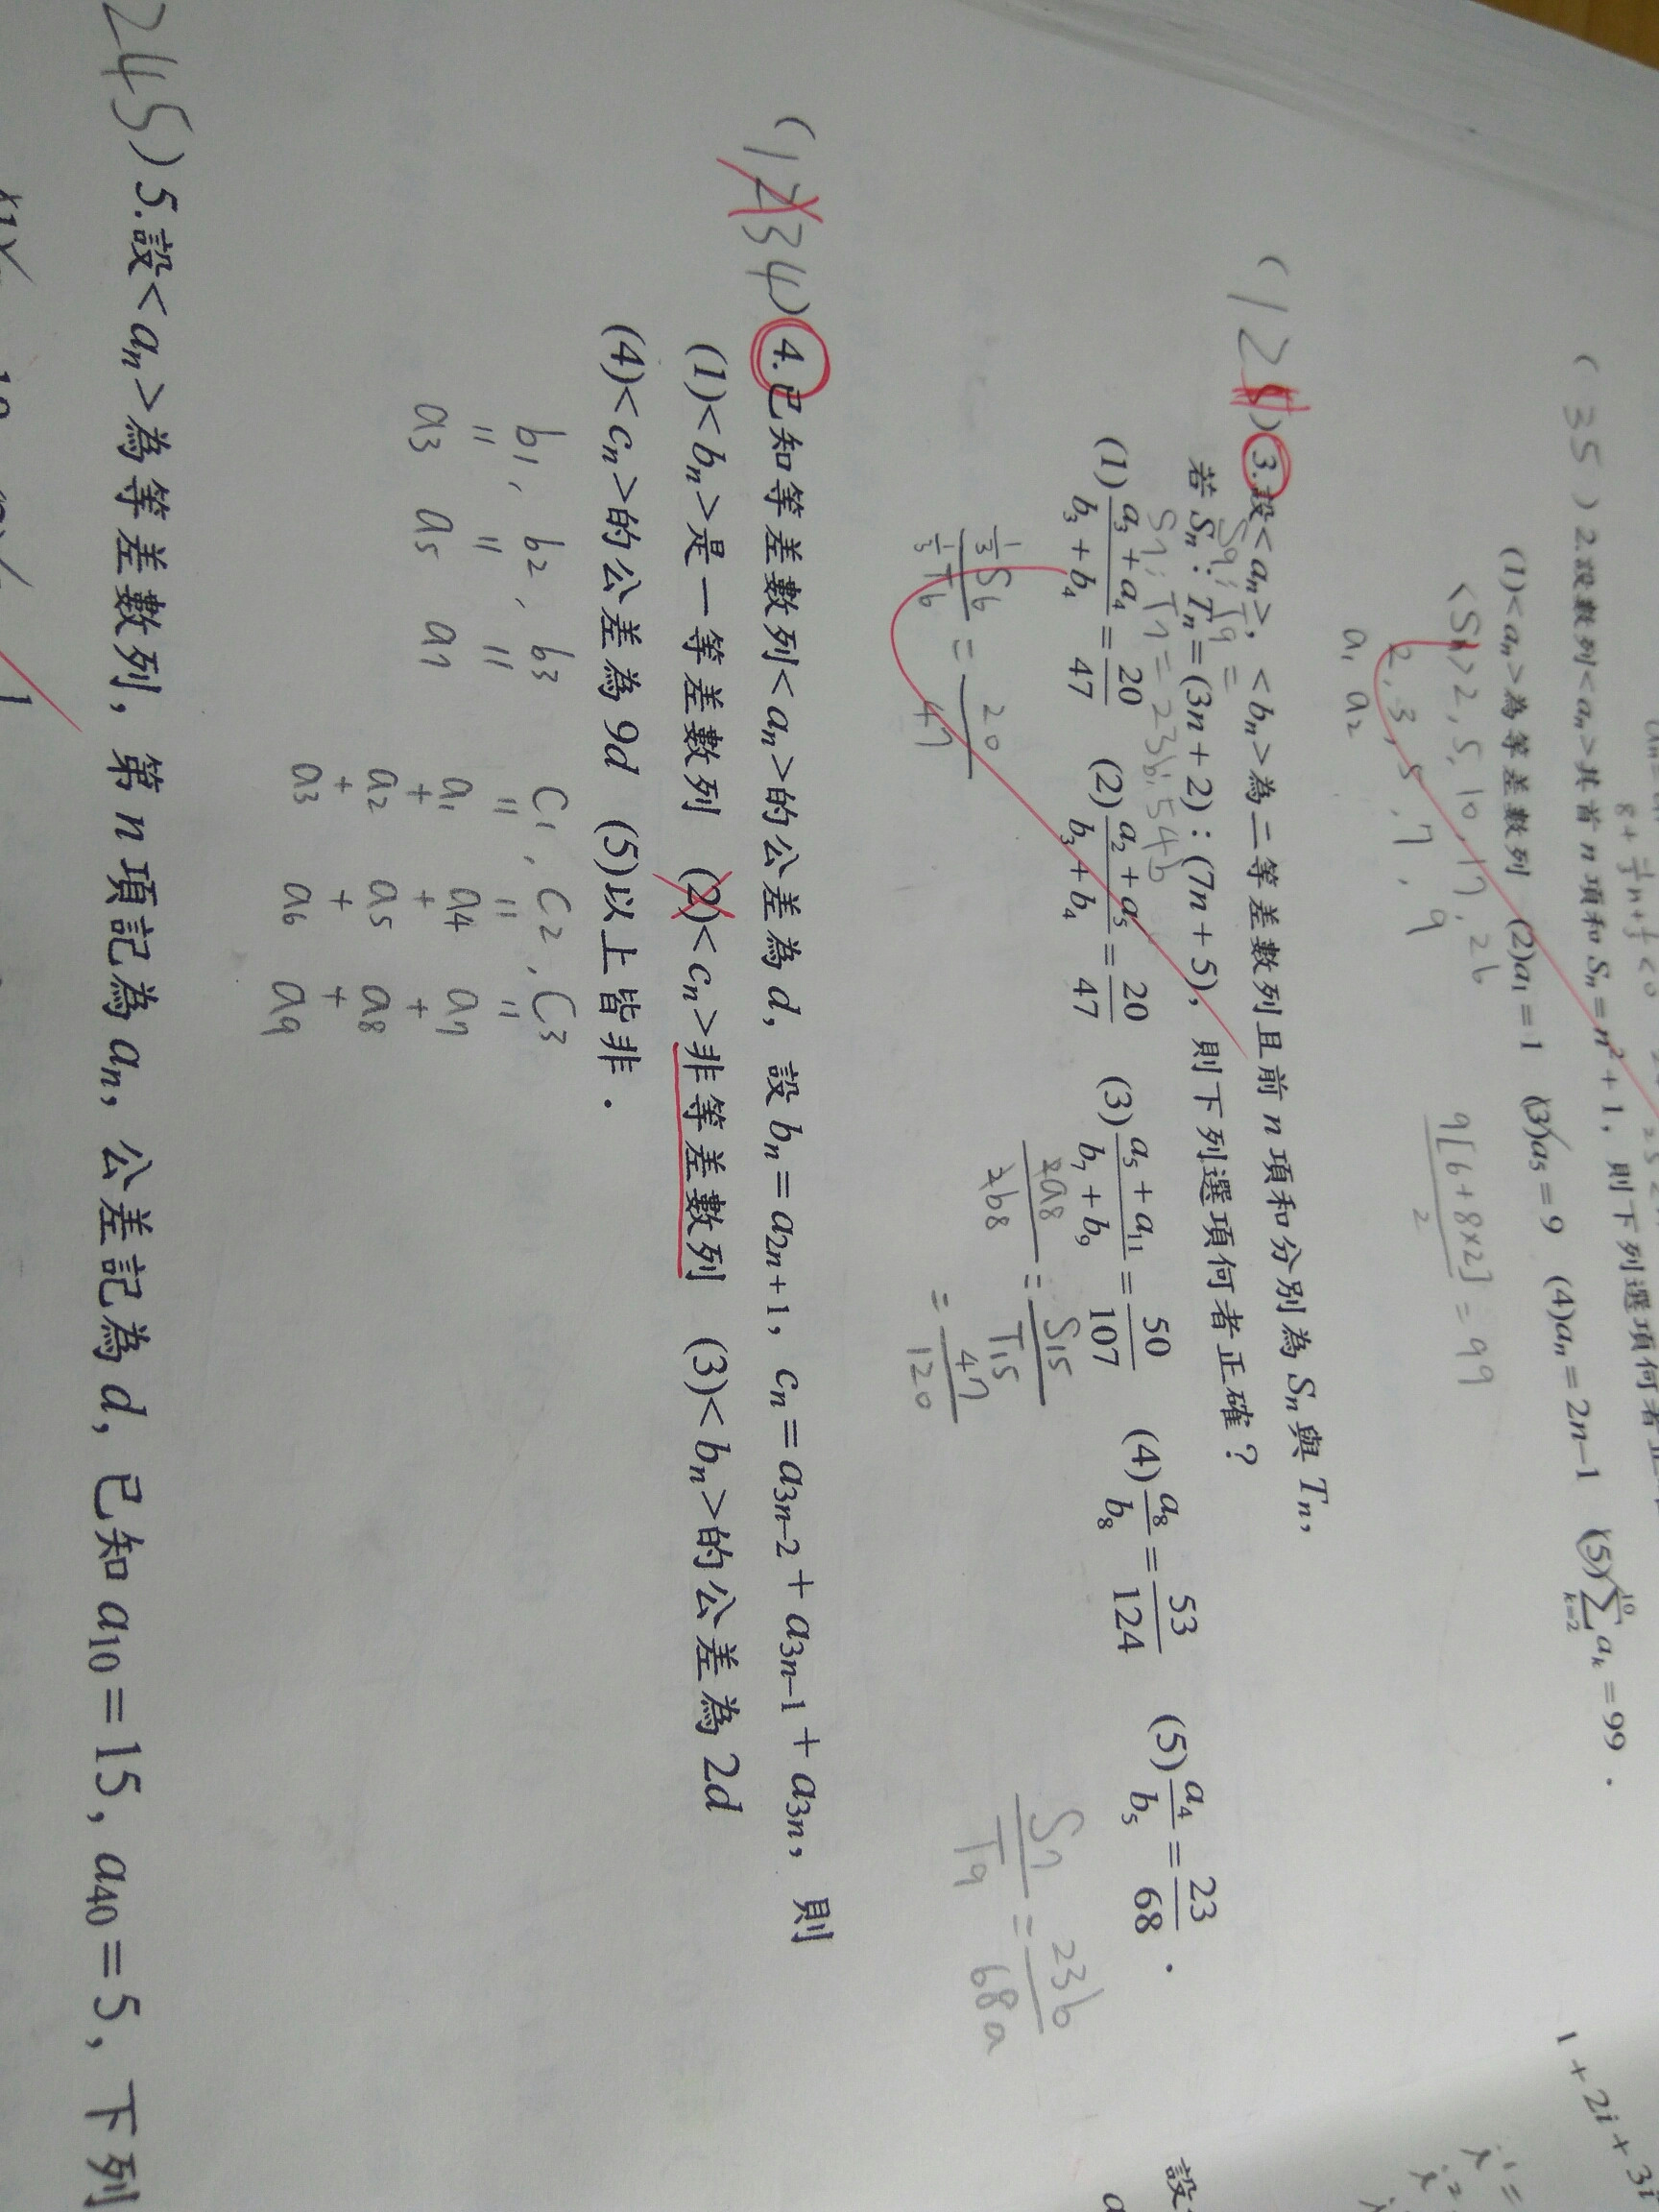 8 + ½n + ½ < 0
( 35 ) 2.設數列<aₙ>其首 n 項和 Sₙ=n²+1, 則下列選項何者正
(1)<aₙ>為等差數列 (2)a₁=1 (3)a₅=9 (4)aₙ=2n−1 (5)∑ₖ₌₂¹⁰ aₖ=99．
<Sₙ> 2, 5, 10, 17, 26
2, 3, 5, 7, 9
a₁ a₂
9[6+8×2]/2 = 99
1+2i+3i
(12)3.設<aₙ>, <bₙ>為二等差數列且前 n 項和分別為 Sₙ與 Tₙ,
若 Sₙ : Tₙ=(3n+2) : (7n+5), 則下列選項何者正確？
S₉ : T₉ =
S₇ : T₇ = 23b : 54b
(1)(a₃+a₄)/(b₃+b₄)=20/47 (2)(a₂+a₅)/(b₃+b₄)=20/47 (3)(a₅+a₁₁)/(b₇+b₉)=50/107 (4)a₈/b₈=53/124 (5)a₄/b₅=23/68．
⅓S₆/⅓T₆ = 20/47
2a₈/2b₈ = S₁₅/T₁₅
= 47/120
S₇/T₉ = 23b/68a
(1234)4.已知等差數列<aₙ>的公差為 d, 設 bₙ=a₂ₙ₊₁, cₙ=a₃ₙ₋₂+a₃ₙ₋₁+a₃ₙ, 則
(1)<bₙ>是一等差數列 (2)<cₙ>非等差數列 (3)<bₙ>的公差為 2d
(4)<cₙ>的公差為 9d (5)以上皆非．
b₁, b₂, b₃ c₁, c₂, c₃
" " " " " "
a₃ a₅ a₇ a₁ a₄ a₇
+ + +
a₂ a₅ a₈
+ + +
a₃ a₆ a₉
245)5.設<aₙ>為等差數列, 第 n 項記為 aₙ, 公差記為 d, 已知 a₁₀=15, a₄₀=5, 下列
設